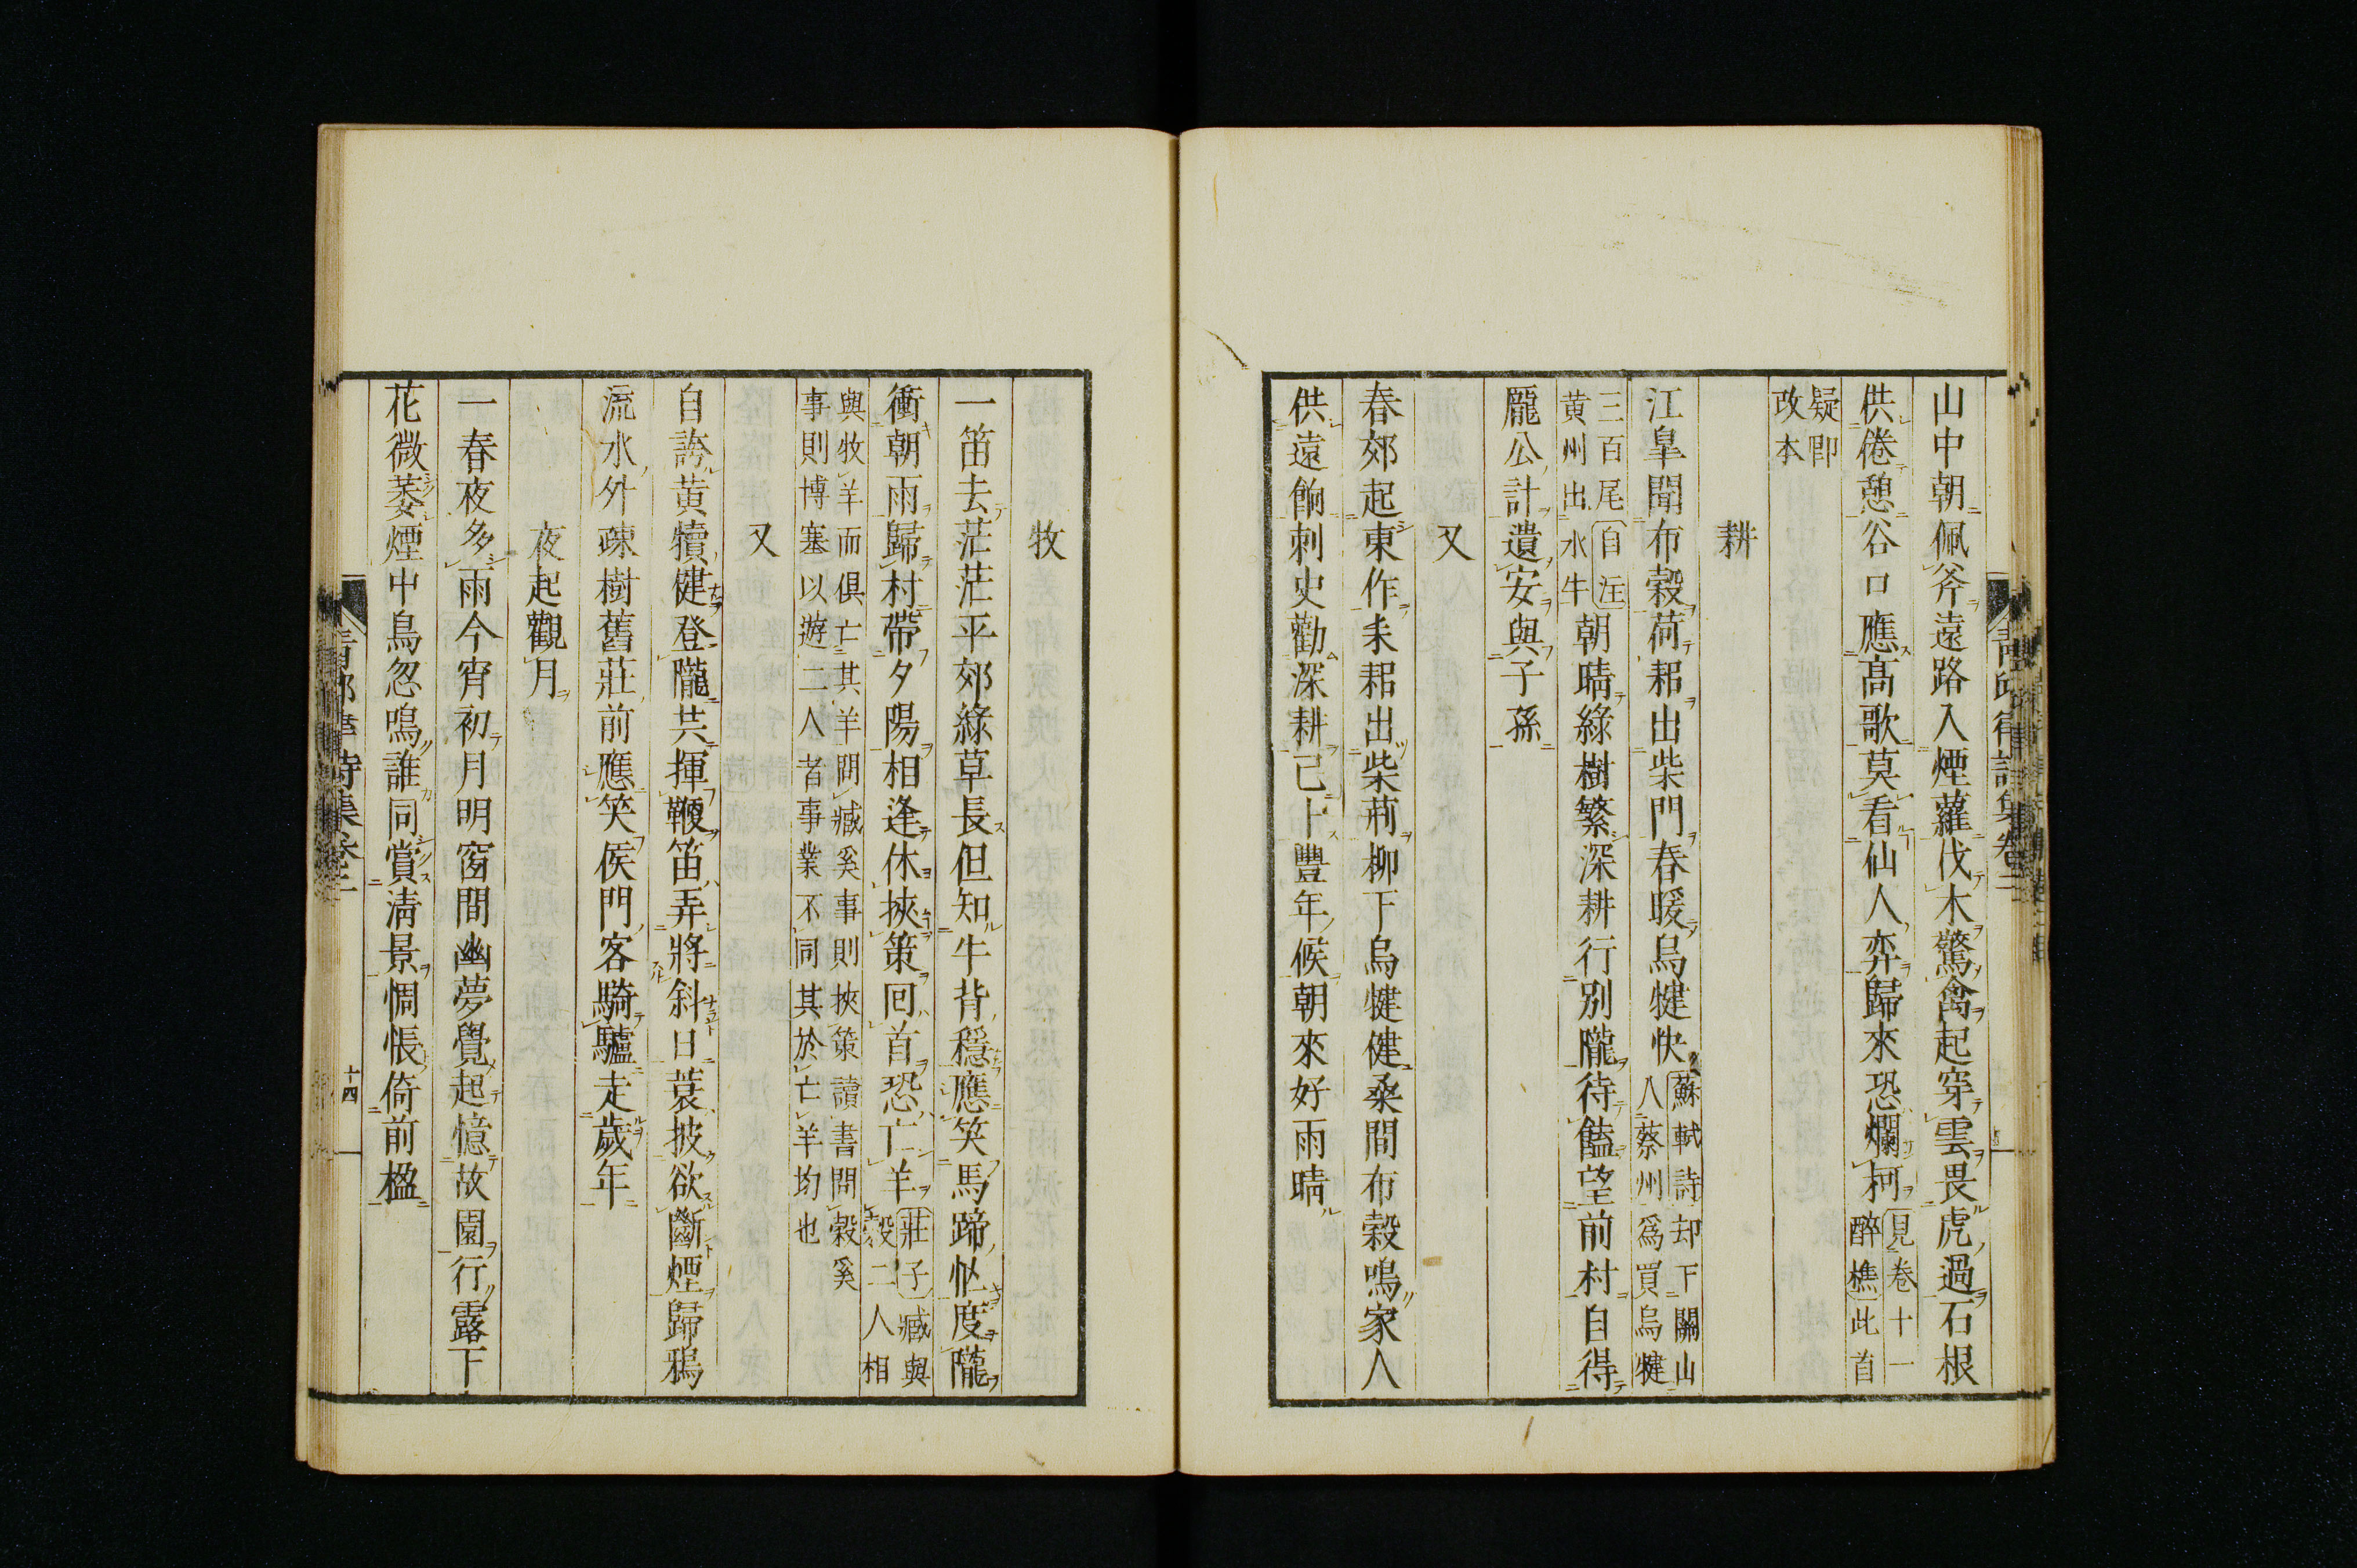 山中朝佩斧遠路入煙蘿伐木驚禽起穿雲畏虎過石根
供倦憩谷口應高歌莫看仙人弈歸來恐爛柯見卷十一
醉樵此首
疑卽
改本
耕
江皐聞布穀荷耜出柴門春暖烏犍快蘇軾詩却下關山
八蔡州爲買烏犍
三百尾自注
黄州出水牛朝晴綠樹繁深耕行別隴待饁望前村自得
龐公計遺安與子孫
又
春郊起東作耒耜出柴荊柳下烏犍健桑間布穀鳴家人
供遠餉刺史勸深耕已卜豐年候朝來好雨晴
牧
一笛去茫茫平郊綠草長但知牛背穩應笑馬蹄忙度隴
衝朝雨歸村帶夕陽相逢休挾策回首恐亡羊莊子臧與
穀二人相
與牧羊而俱亡其羊問臧奚事則挾策讀書問穀奚
事則博塞以遊二人者事業不同其於亡羊均也
又
自誇黄犢健登隴共揮鞭笛弄將斜日蓑披欲斷煙歸鴉
流水外疎樹舊莊前應笑侯門客騎驢走歲年
夜起觀月
一春夜多雨今宵初月明窗間幽夢覺起憶故園行露下
花微萎煙中鳥忽鳴誰同賞淸景惆悵倚前楹
十四